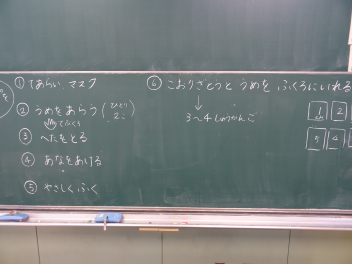 ① てあらい マスク
② うめをあらう (ひとり 2こ)
③ へたをとる
④ あなをあける
⑤ やさしくふく
⑥ こおりざとうと うめを ふくろにいれる
↓
3〜4しゅうかんご
1 2
5 4